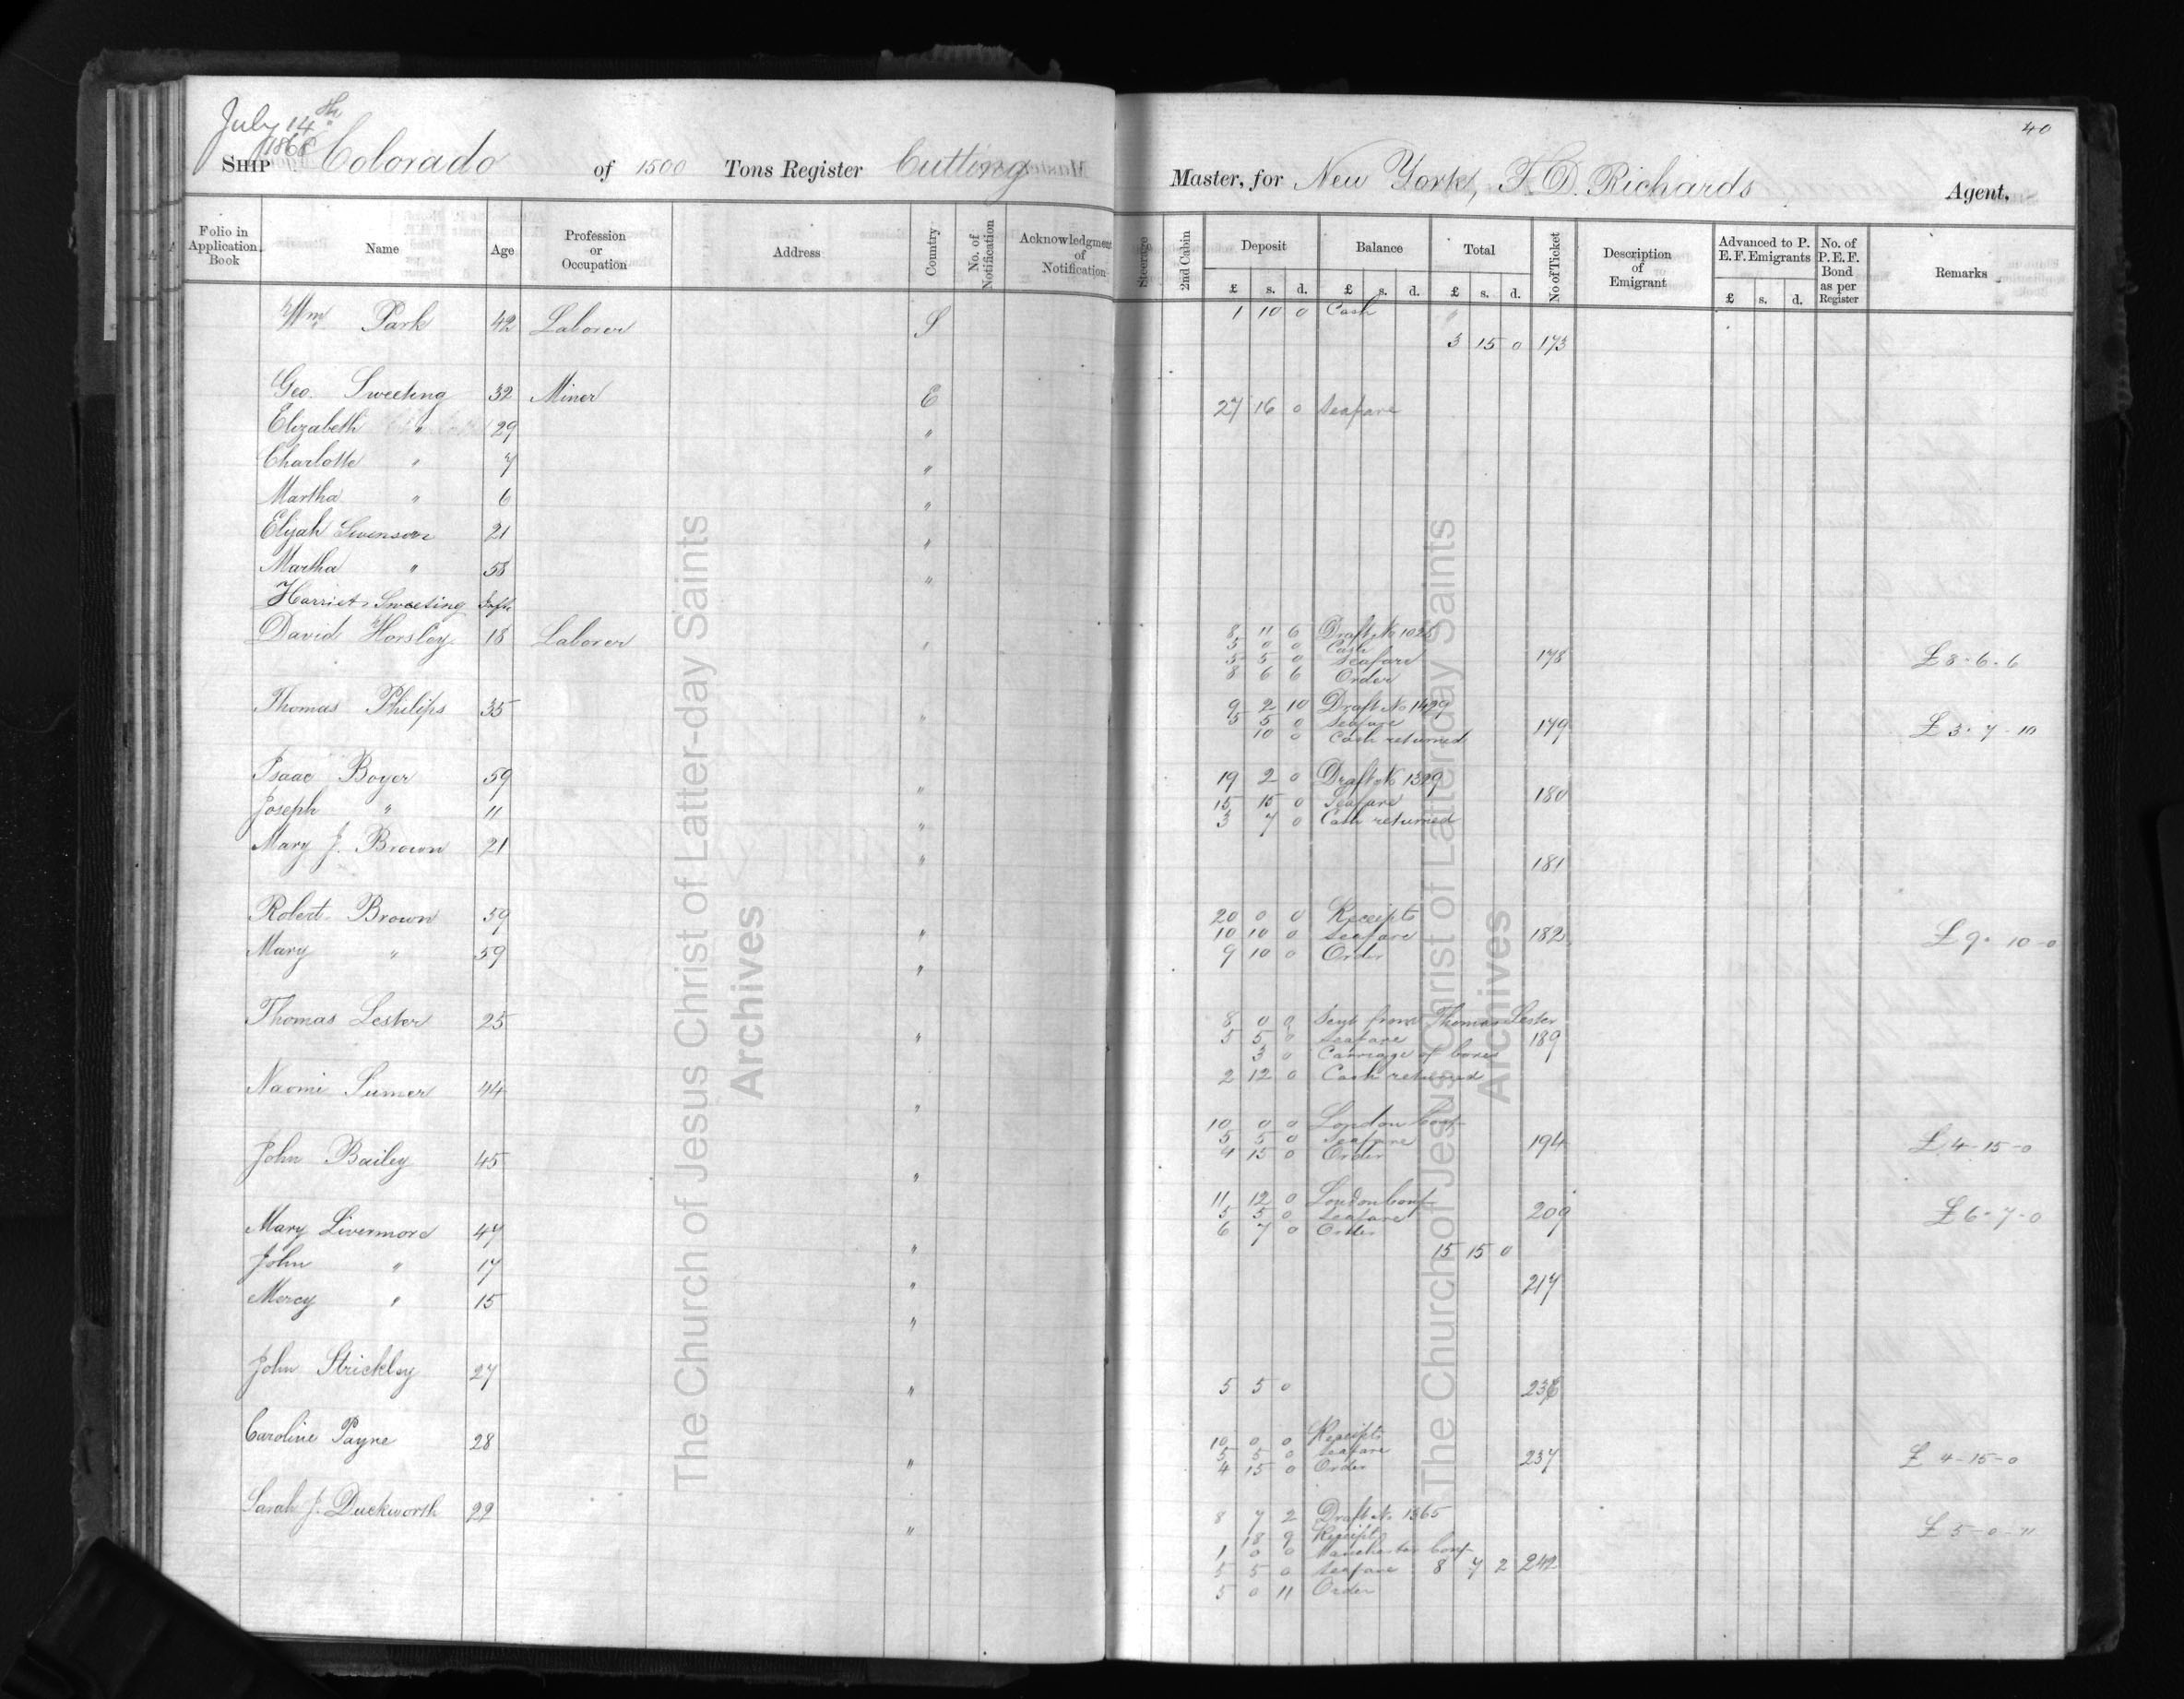 July 14th
1868
SHIP Colorado of 1500 Tons Register Cutting Master, for New York, F. D. Richards Agent,
40
Folio in Application Book Name Age Profession or Occupation Address Country No. of Notification Acknowledgment of Notification Steerage 2nd Cabin Deposit Balance Total No of Ticket Description of Emigrant Advanced to P. E. F. Emigrants No. of P. E. F. Bond as per Register Remarks
£ s. d. £ s. d. £ s. d. £ s. d.
Wm Park 42 Laborer S 1 10 0 Cash
3 15 0 173
Geo. Sweeting 32 Miner E 27 16 0 Seafare
Elizabeth " 29 "
Charlotte " 7 "
Martha " 6 "
Elijah Swenson 21 "
Martha " 58 "
Harriet Sweeting Inft
David Horsley 18 Laborer " 8 11 6 Draft No 1028
5 0 0 Cash
5 5 0 Seafare 178 £8-6-6
8 6 6 Order
Thomas Philips 35 " 9 2 10 Draft No 1429
5 5 0 Seafare 179 £3-7-10
10 0 Cash returned
Isaac Boyer 59 " 19 2 0 Draft No 1329
Joseph " 11 " 15 15 0 Seafare 180
3 7 0 Cash returned
Mary J. Brown 21 " 181
Robert Brown 59 " 20 0 0 Receipts
10 10 0 Seafare 182 £9-10-0
Mary " 59 " 9 10 0 Order
Thomas Lester 25 " 8 0 0 Sent from Thomas Lester
5 5 0 Seafare 189
3 0 Carriage of boxes
2 12 0 Cash returned
Naomi Sumer 44 "
10 0 0 London Conf
5 5 0 Seafare 194 £4-15-0
4 15 0 Order
John Bailey 45 "
11 12 0 London Conf
5 5 0 Seafare 209 £6-7-0
6 7 0 Order
Mary Livermore 47 " 15 15 0
John " 17 " 217
Mercy " 15 "
John Strickley 27 " 5 5 0 236
Caroline Payne 28 " 10 0 0 Receipts
5 5 0 Seafare 237 £4-15-0
4 15 0 Order
Sarah J. Duckworth 22 " 8 7 2 Draft No 1365
18 9 Receipt £5-0-11
1 0 0 Manchester Conf
5 5 0 Seafare 8 7 2 242
5 0 11 Order
The Church of Jesus Christ of Latter-day Saints
Archives
The Church of Jesus Christ of Latter-day Saints
Archives